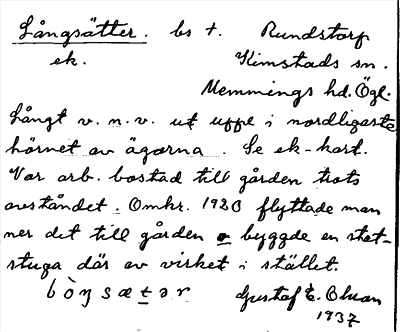 Långsätter. bs t. Rundstorp
ek. Kimstads sn.
Memmings hd. Ögl.
Långt v. n. v. ut uppe i nordligaste
hörnet av ägorna. Se ek-kart.
Var arb. bostad till gården trots
avståndet. Omkr. 1920 flyttade man
ner det till gården o byggde en stat-
stuga där av virket i stället.
Gustaf E. Olson
1937